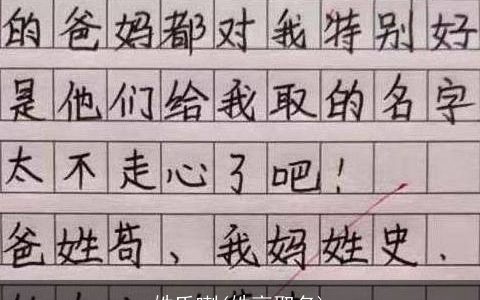 的爸妈都对我特别好
是他们给我取的名字
太不走心了吧！
爸姓苟、我妈姓史.